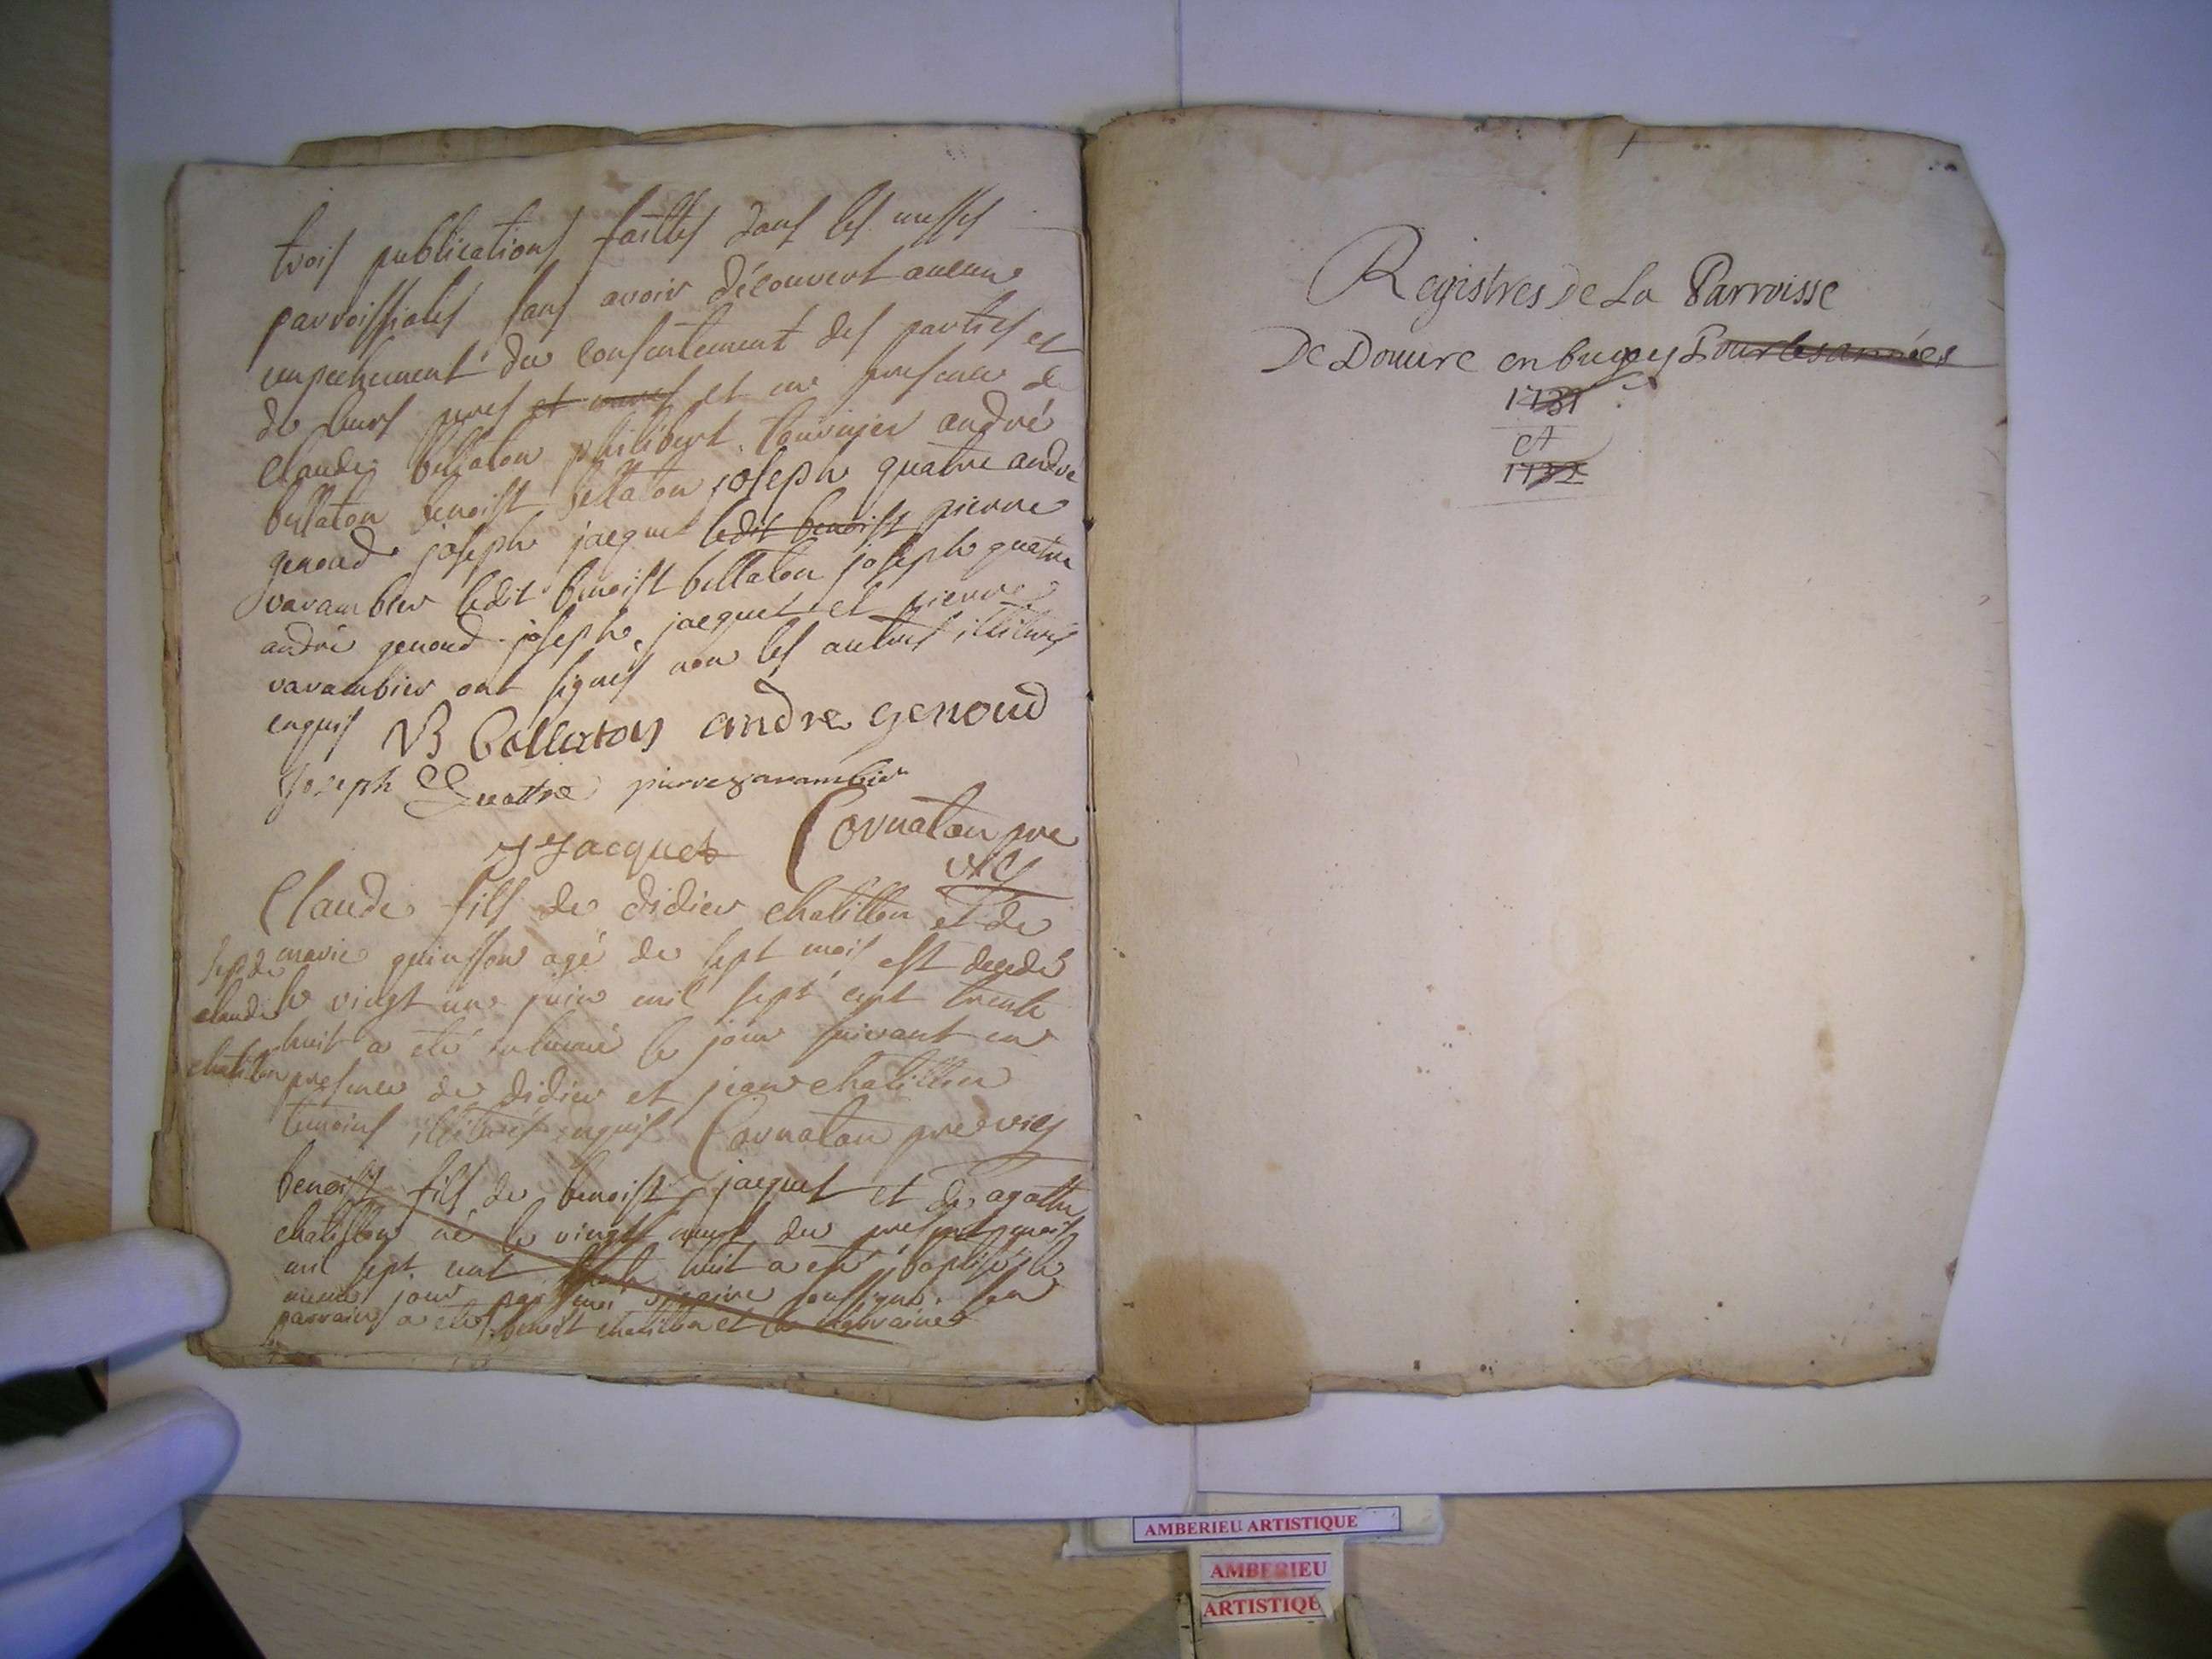 trois publications faittes dans les messes
parroissiales sans avoir découvert aucun
empechement du consentement des parties et
de leurs peres et meres et en presence de
claude bellaton philibert tournier andré
bellaton benoist bellaton joseph quatre andré
genoud joseph jacquet ledit benoist pierre
varambier ledit benoist bellaton joseph quatre
andré genoud joseph jacquet et pierre
varambier ont signés non les autres illiterés
enquis B Bellaton andre genoud
Joseph Quattre pierre varambier
J Jacquet Cornaton pre
vic
Claude fils de didier chatillon et de
marie guinsson agé de sept mois est decedé
le vingt un juin mil sept cent trente
huit a eté inhumé le jour suivant en
presence de didier et jean chatillon
temoins illiterés enquis Cornaton pre vic
sep. de
claude
chatillon
benoist fils de benoist jacquet et de agathe
chatillon né le vingt du present mois
mil sept cent trente huit a eté baptisé le
meme jour par moi vicaire soussigné son
parrain a eté benoist chatillon et la marraine
Registres De La Parroisse
De Douure en bugey Pour les années
1731
et
1732
AMBERIEU ARTISTIQUE
AMBERIEU
ARTISTIQUE